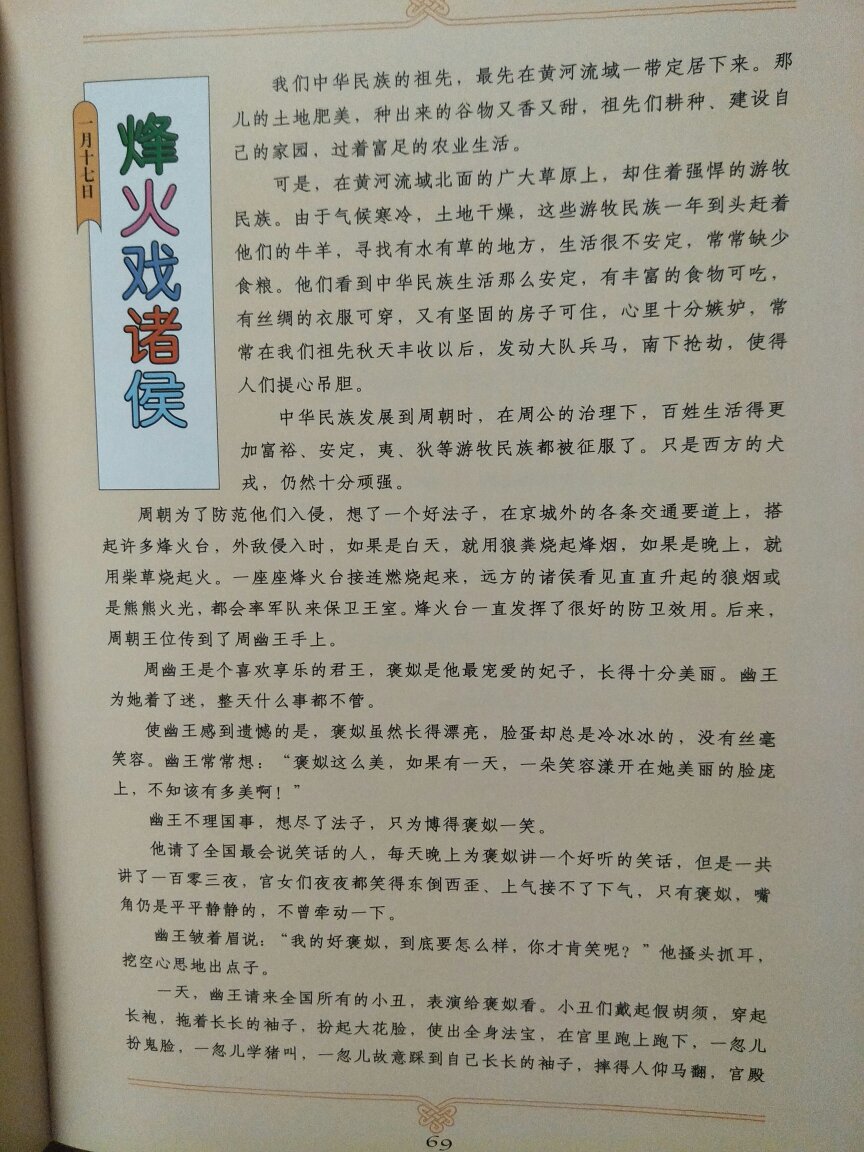 一月十七日
烽火戏诸侯
我们中华民族的祖先，最先在黄河流域一带定居下来。那
儿的土地肥美，种出来的谷物又香又甜，祖先们耕种、建设自
己的家园，过着富足的农业生活。
可是，在黄河流域北面的广大草原上，却住着强悍的游牧
民族。由于气候寒冷，土地干燥，这些游牧民族一年到头赶着
他们的牛羊，寻找有水有草的地方，生活很不安定，常常缺少
食粮。他们看到中华民族生活那么安定，有丰富的食物可吃，
有丝绸的衣服可穿，又有坚固的房子可住，心里十分嫉妒，常
常在我们祖先秋天丰收以后，发动大队兵马，南下抢劫，使得
人们提心吊胆。
中华民族发展到周朝时，在周公的治理下，百姓生活得更
加富裕、安定，夷、狄等游牧民族都被征服了。只是西方的犬
戎，仍然十分顽强。
周朝为了防范他们入侵，想了一个好法子，在京城外的各条交通要道上，搭
起许多烽火台，外敌侵入时，如果是白天，就用狼粪烧起烽烟，如果是晚上，就
用柴草烧起火。一座座烽火台接连燃烧起来，远方的诸侯看见直直升起的狼烟或
是熊熊火光，都会率军队来保卫王室。烽火台一直发挥了很好的防卫效用。后来，
周朝王位传到了周幽王手上。
周幽王是个喜欢享乐的君王，褒姒是他最宠爱的妃子，长得十分美丽。幽王
为她着了迷，整天什么事都不管。
使幽王感到遗憾的是，褒姒虽然长得漂亮，脸蛋却总是冷冰冰的，没有丝毫
笑容。幽王常常想：“褒姒这么美，如果有一天，一朵笑容漾开在她美丽的脸庞
上，不知该有多美啊！”
幽王不理国事，想尽了法子，只为博得褒姒一笑。
他请了全国最会说笑话的人，每天晚上为褒姒讲一个好听的笑话，但是一共
讲了一百零三夜，宫女们夜夜都笑得东倒西歪、上气接不了下气，只有褒姒，嘴
角仍是平平静静的，不曾牵动一下。
幽王皱着眉说：“我的好褒姒，到底要怎么样，你才肯笑呢？”他搔头抓耳，
挖空心思地出点子。
一天，幽王请来全国所有的小丑，表演给褒姒看。小丑们戴起假胡须，穿起
长袍，拖着长长的袖子，扮起大花脸，使出全身法宝，在宫里跑上跑下，一忽儿
扮鬼脸，一忽儿学猪叫，一忽儿故意踩到自己长长的袖子，摔得人仰马翻，宫殿
69